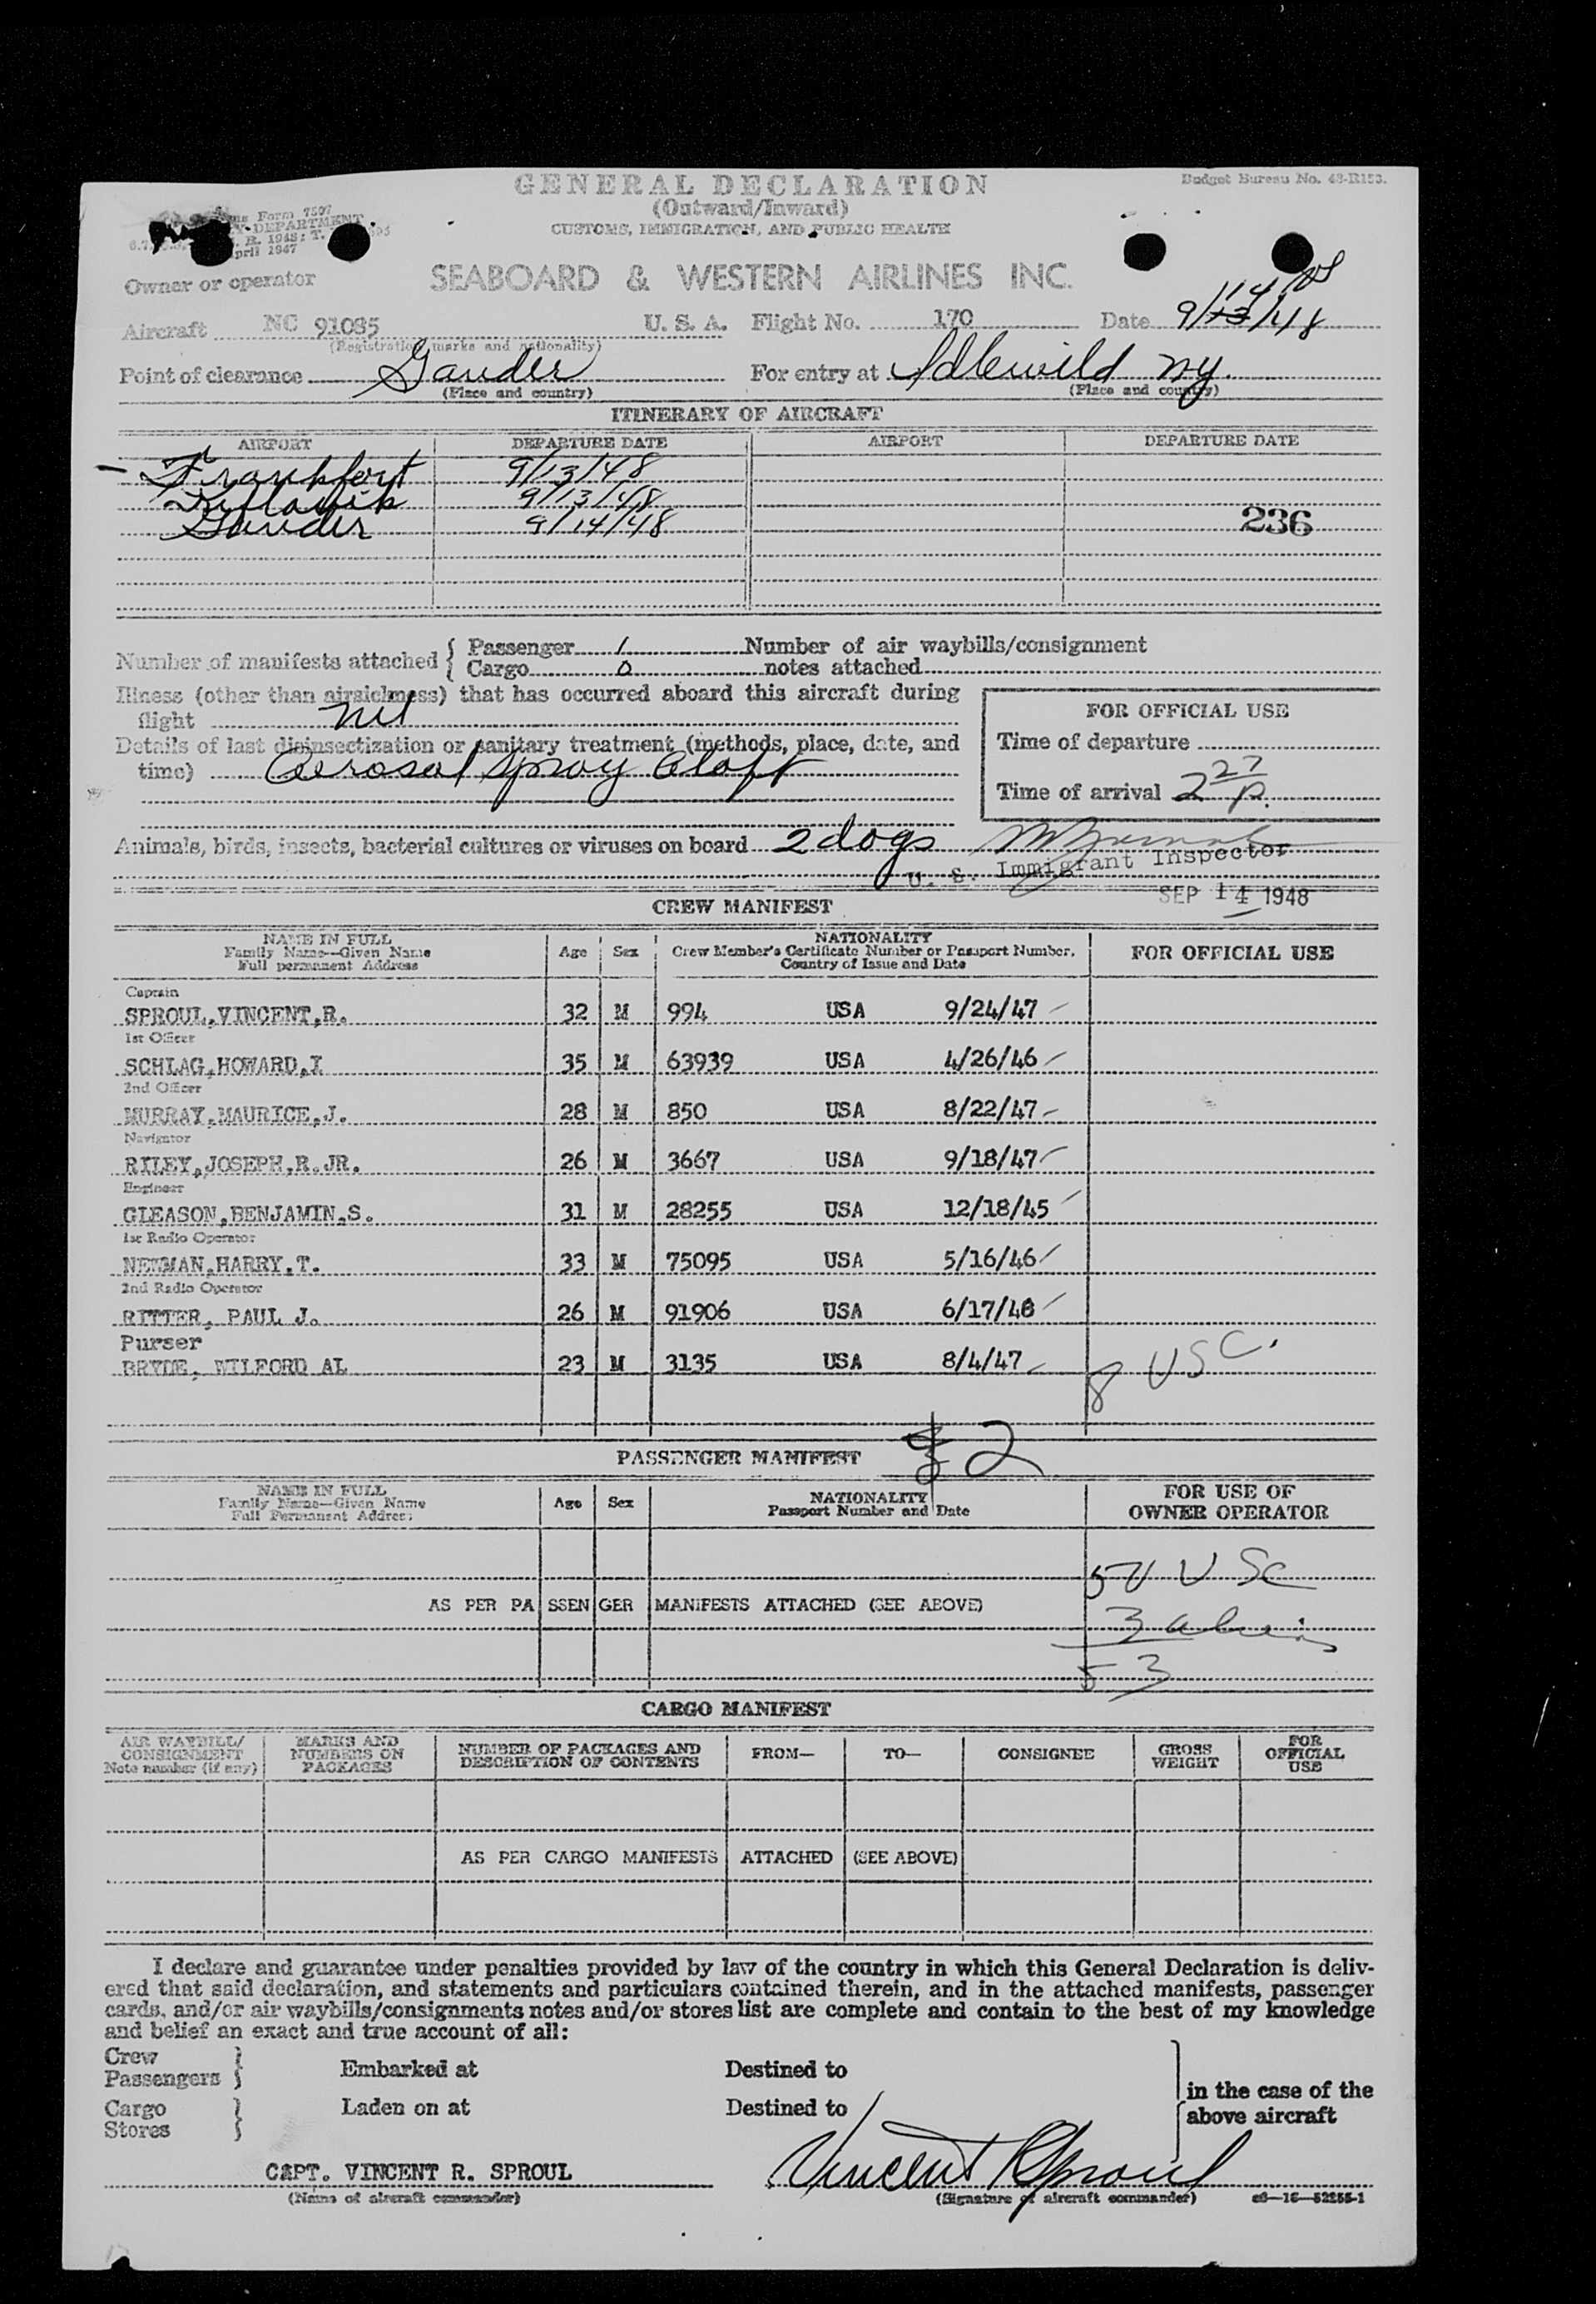 GENERAL DECLARATION
Budget Bureau No. 48-R153.
(Outward/Inward)
CUSTOMS, IMMIGRATION, AND PUBLIC HEALTH
Form 7507
DEPARTMENT
April 1947
Owner or operator SEABOARD & WESTERN AIRLINES INC.
Aircraft NC 91085 U. S. A. Flight No. 170 Date 9/13/48 14
(Registration marks and nationality)
Point of clearance Gander For entry at Idlewild NY.
(Place and country) (Place and country)
ITINERARY OF AIRCRAFT
AIRPORT DEPARTURE DATE AIRPORT DEPARTURE DATE
Frankfort 9/13/48
Keflavik 9/13/48
Gander 9/14/48 236
Number of manifests attached { Passenger 1 Number of air waybills/consignment
Cargo 0 notes attached
Illness (other than airsickness) that has occurred aboard this aircraft during
flight nil
FOR OFFICIAL USE
Details of last disinsectization or sanitary treatment (methods, place, date, and
time) Aerosol Spray Aloft
Time of departure
Time of arrival 2 27 P.
Animals, birds, insects, bacterial cultures or viruses on board 2 dogs
U. S. Immigrant Inspector
SEP 14 1948
CREW MANIFEST
NAME IN FULL
Family Name—Given Name
Full permanent Address
Age Sex
NATIONALITY
Crew Member's Certificate Number or Passport Number,
Country of Issue and Date
FOR OFFICIAL USE
Captain
SPROUL,VINCENT,R. 32 M 994 USA 9/24/47
1st Officer
SCHLAG,HOWARD,I 35 M 63939 USA 4/26/46
2nd Officer
MURRAY,MAURICE,J. 28 M 850 USA 8/22/47
Navigator
RILEY,JOSEPH,R.JR. 26 M 3667 USA 9/18/47
Engineer
GLEASON,BENJAMIN,S. 31 M 28255 USA 12/18/45
1st Radio Operator
NEWMAN,HARRY,T. 33 M 75095 USA 5/16/46
2nd Radio Operator
RITTER, PAUL J. 26 M 91906 USA 6/17/48
Purser
BRYDE, WILFORD AL 23 M 3135 USA 8/4/47 8 USC.
PASSENGER MANIFEST 2
NAME IN FULL
Family Name—Given Name
Full Permanent Address
Age Sex
NATIONALITY
Passport Number and Date
FOR USE OF
OWNER OPERATOR
50 USC
AS PER PASSENGER MANIFESTS ATTACHED (SEE ABOVE)
3 aliens
53
CARGO MANIFEST
AIR WAYBILL/
CONSIGNMENT
Note number (if any)
MARKS AND
NUMBERS ON
PACKAGES
NUMBER OF PACKAGES AND
DESCRIPTION OF CONTENTS
FROM— TO— CONSIGNEE
GROSS
WEIGHT
FOR
OFFICIAL
USE
AS PER CARGO MANIFESTS ATTACHED (SEE ABOVE)
I declare and guarantee under penalties provided by law of the country in which this General Declaration is deliv-
ered that said declaration, and statements and particulars contained therein, and in the attached manifests, passenger
cards, and/or air waybills/consignments notes and/or stores list are complete and contain to the best of my knowledge
and belief an exact and true account of all:
Crew
Passengers } Embarked at Destined to
Cargo
Stores } Laden on at Destined to
in the case of the
above aircraft
CAPT. VINCENT R. SPROUL Vincent R Sproul
(Name of aircraft commander) (Signature of aircraft commander) c6—16—52255-1